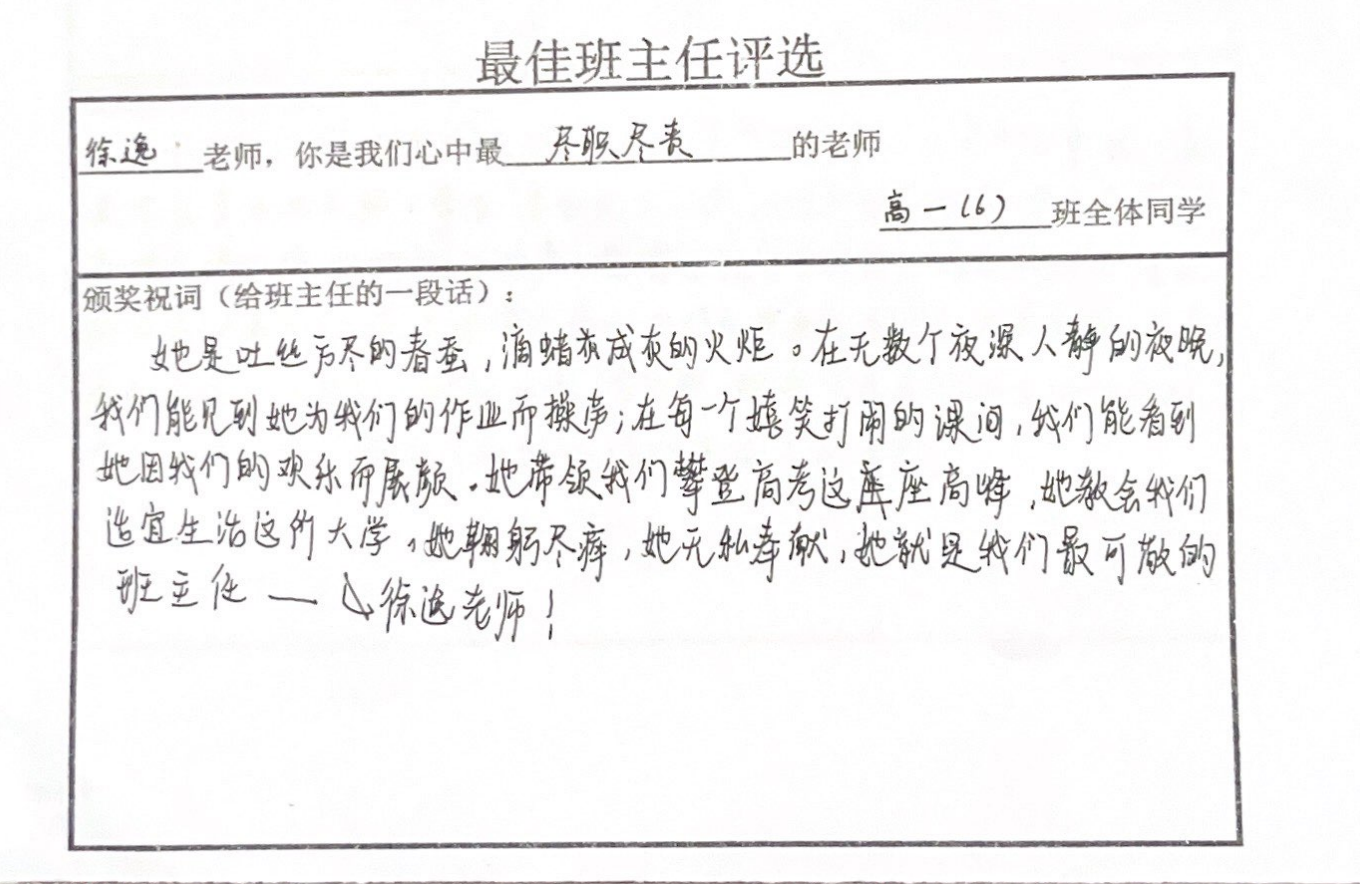 最佳班主任评选
徐逸 老师，你是我们心中最 尽职尽责 的老师
高一(6) 班全体同学
颁奖祝词（给班主任的一段话）：
她是吐丝方尽的春蚕，滴蜡成灰的火炬。在无数个夜深人静的夜晚，
我们能见到她为我们的作业而操劳；在每一个嬉笑打闹的课间，我们能看到
她因我们的欢乐而展颜。她带领我们攀登高考这座高峰，她教会我们
适宜生活这所大学。她鞠躬尽瘁，她无私奉献，她就是我们最可敬的
班主任——徐逸老师！